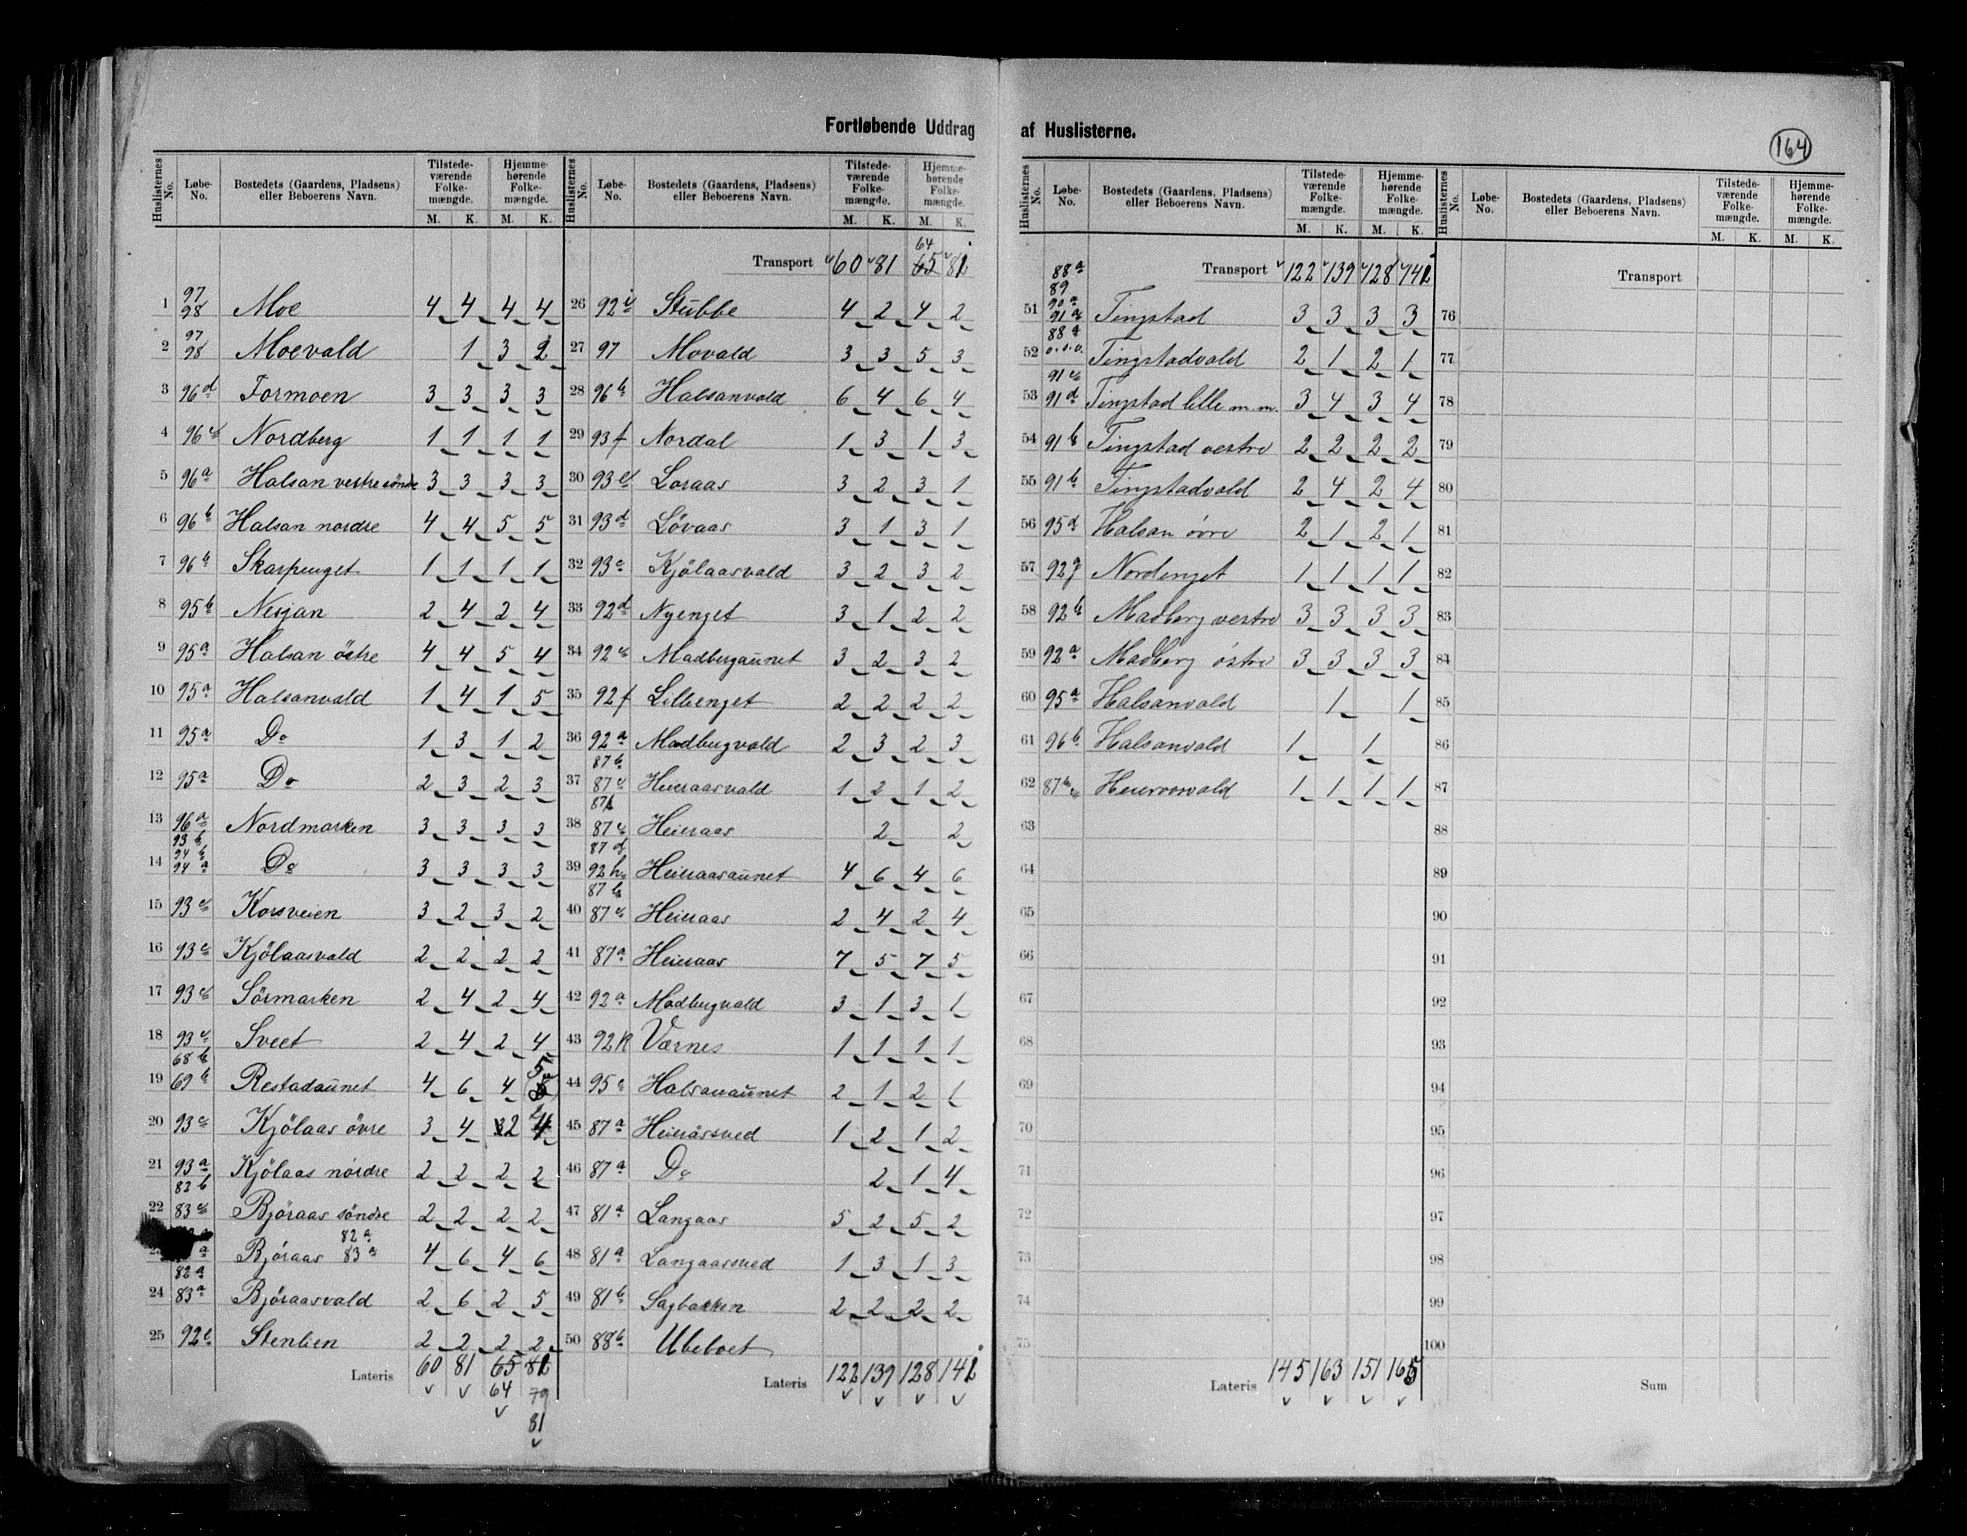 Fortløbende Uddrag af Huslisterne.
164
Huslisternes No. | Løbe-No. | Bostedets (Gaardens, Pladsens) eller Beboerens Navn. | Tilstedeværende Folkemængde. M. K. | Hjemmehørende Folkemængde. M. K.
1 97 98 Moe 4 4 4 4
2 97 98 Moevald 1 3 2
3 96d Formoen 3 3 3 3
4 96c Nordberg 1 1 1 1
5 96a Halsan vestre søndre 3 3 3 3
6 96b Halsan nordre 4 4 5 5
7 96b Skarpenget 1 1 1 1
8 95b Nesjan 2 4 2 4
9 95a Halsan östre 4 4 5 4
10 95a Halsanvald 1 4 1 5
11 95a Do 1 3 1 2
12 95a Do 2 3 2 3
13 96a Nordmarken 3 3 3 3
14 93b 94b 94a Do 3 3 3 3
15 93c Korsveien 3 2 3 2
16 93c Kjölaasvald 2 2 2 2
17 93c Sörmarken 2 4 2 4
18 93c Sveet 2 4 2 4
19 68b 69b Restadaunet 4 6 4 5
20 93c Kjölaas övre 3 4 2 4
21 93a Kjölaas nordre 2 2 2 2
22 82b 83c Björaas söndre 2 2 2 2
23 Björaas 82a 83a 4 6 4 6
24 82a 83a Björaasvald 2 6 2 5
25 92c Stenlien 2 2 2 2
Lateris 60 81 65 81
64 79
81
Huslisternes No. | Løbe-No. | Bostedets (Gaardens, Pladsens) eller Beboerens Navn. | Tilstedeværende Folkemængde. M. K. | Hjemmehørende Folkemængde. M. K.
64
Transport 60 81 65 81
26 92i Stubbe 4 2 4 2
27 97 Movald 3 3 5 3
28 96b Halsanvald 6 4 6 4
29 93f Nordal 1 3 1 3
30 93e Loraas 3 2 3 1
31 93d Lövaas 3 1 3 1
32 93c Kjölaasvald 3 2 3 2
33 92d Nyenget 3 1 2 2
34 92c Madbergaunet 3 2 3 2
35 92f Lillenget 2 2 2 2
36 92a Madbergvald 2 3 2 3
37 87b 87c Heieraasvald 1 2 1 2
38 87b 87c Heieraas 2 2
39 87d 92h Heieraasaunet 4 6 4 6
40 87b 87c Heieraas 2 4 2 4
41 87a Heieraas 7 5 7 5
42 92a Madbergvald 3 1 3 1
43 92k Værnes 1 1 1 1
44 95c Halsanaunet 2 1 2 1
45 87a Heieråsved 1 2 1 2
46 87a Do 2 1 4
47 81a Langaas 5 2 5 2
48 81a Langaasved 1 3 1 3
49 81b Sagbakken 2 2 2 2
50 88b Ubeboet
Lateris 122 139 128 141
Huslisternes No. | Løbe-No. | Bostedets (Gaardens, Pladsens) eller Beboerens Navn. | Tilstedeværende Folkemængde. M. K. | Hjemmehørende Folkemængde. M. K.
Transport 122 139 128 141
51 88a 89 90a 91a Tingstad 3 3 3 3
52 88a o.s.v. Tingstadvald 2 1 2 1
53 91c 91d Tingstad lille m m. 3 4 3 4
54 91b Tingstad vestre 2 2 2 2
55 91b Tingstadvald 2 4 2 4
56 95d Halsan övre 2 1 2 1
57 92g Nordenget 1 1 1 1
58 92b Madberg vestre 3 3 3 3
59 92a Madberg østre 3 3 3 3
60 95a Halsanvald 1 1
61 96b Halsanvald 1 1
62 87b c Heieraasvald 1 1 1 1
63
64
65
66
67
68
69
70
71
72
73
74
75
Lateris 145 163 151 165
Huslisternes No. | Løbe-No. | Bostedets (Gaardens, Pladsens) eller Beboerens Navn. | Tilstedeværende Folkemængde. M. K. | Hjemmehørende Folkemængde. M. K.
Transport
76
77
78
79
80
81
82
83
84
85
86
87
88
89
90
91
92
93
94
95
96
97
98
99
100
Sum